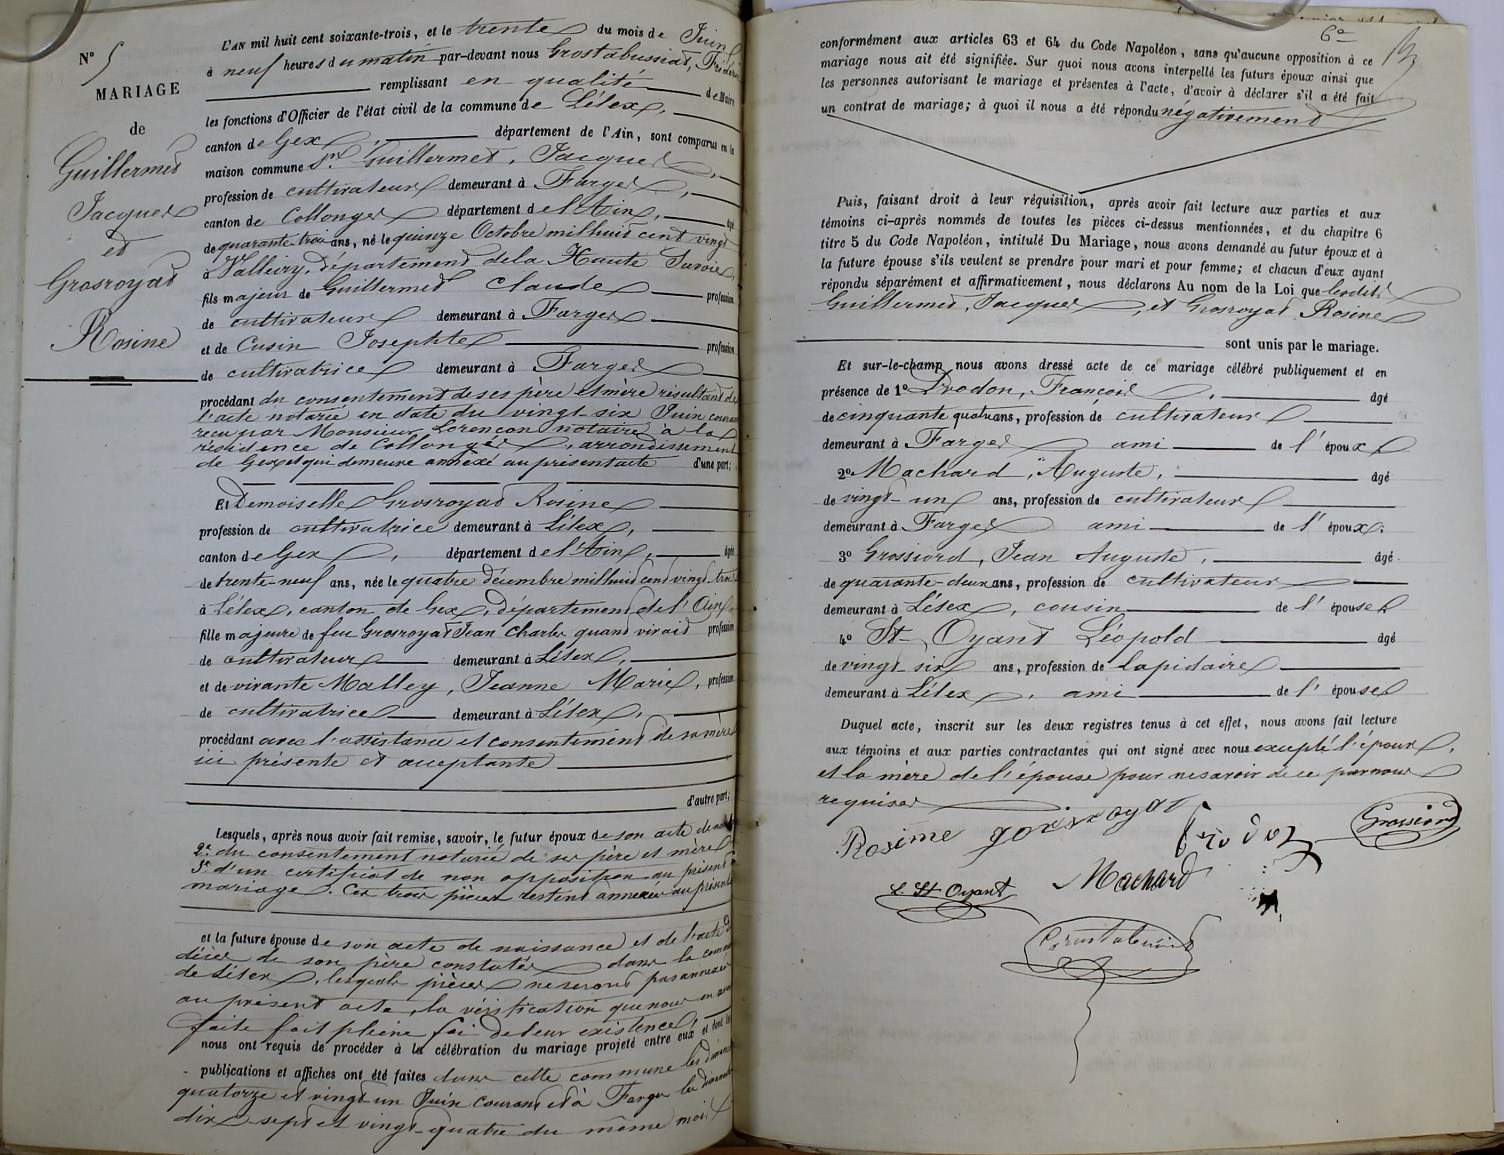 N° 5
MARIAGE
de
Guillermet
Jacques
et
Grosroyat
Rosine
L'AN mil huit cent soixante-trois, et le trente du mois de Juin
à neuf heures du matin par-devant nous Grostabussiat,
remplissant en qualité de Maire
les fonctions d'Officier de l'état civil de la commune de Lélex,
canton de Gex, département de l'Ain, sont comparus en la
maison commune Sr. Guillermet, Jacques,
profession de cultivateur demeurant à Farges,
canton de Collonges département de l'Ain, âgé
de quarante trois ans, né le quinze Octobre mil huit cent vingt
à Valleiry, département de la Haute Savoie,
fils majeur de Guillermet Claude profession
de cultivateur demeurant à Farges
et de Cusin Josephte profession
de cultivatrice demeurant à Farges
procédant du consentement de ses père et mère résultant de
l'acte notarié en date du vingt six Juin courant
reçu par Monsieur Lorençon notaire à la
résidence de Collonges, arrondissement
de Gex et qui demeure annexé au présent acte d'une part;
Et Demoiselle Grosroyat Rosine
profession de cultivatrice demeurant à Lélex,
canton de Gex, département de l'Ain, âgée
de trente-neuf ans, née le quatre décembre mil huit cent vingt trois
à Lélex, canton de Gex, département de l'Ain
fille majeure de feu Grosroyat Jean Charles quand vivait profession
de cultivateur demeurant à Lélex,
et de vivante Malley, Jeanne Marie, profession
de cultivatrice demeurant à Lélex,
procédant avec l'assistance et consentement de sa mère
ici présente et acceptante
d'autre part;
Lesquels, après nous avoir fait remise, savoir, le futur époux de son acte de
2° du consentement notarié de ses père et mère
3° d'un certificat de non opposition au présent
mariage. Ces trois pièces restent annexées au présent
et la future épouse de son acte de naissance et de l'acte de
décès de son père constatés dans la commune
de Lélex, lesquels pièces ne seront pas annexées
au présent acte, la vérification que nous en avons
faite fait pleine foi de leur existence,
nous ont requis de procéder à la célébration du mariage projeté entre eux et dont les
publications et affiches ont été faites dans cette commune les dimanches
quatorze et vingt un Juin courant et à Farges les dimanches
dix sept et vingt-quatre du même mois
6°
conformément aux articles 63 et 64 du Code Napoléon, sans qu'aucune opposition à ce
mariage nous ait été signifiée. Sur quoi nous avons interpellé les futurs époux ainsi que
les personnes autorisant le mariage et présentes à l'acte, d'avoir à déclarer s'il a été fait
un contrat de mariage; à quoi il nous a été répondu négativement
Puis, faisant droit à leur réquisition, après avoir fait lecture aux parties et aux
témoins ci-après nommés de toutes les pièces ci-dessus mentionnées, et du chapitre 6
titre 5 du Code Napoléon, intitulé Du Mariage, nous avons demandé au futur époux et à
la future épouse s'ils veulent se prendre pour mari et pour femme; et chacun d'eux ayant
répondu séparément et affirmativement, nous déclarons Au nom de la Loi que lesdits
Guillermet, Jacques, et Grosroyat Rosine
sont unis par le mariage.
Et sur-le-champ nous avons dressé acte de ce mariage célébré publiquement et en
présence de 1° Prodon, François, âgé
de cinquante quatre ans, profession de cultivateur
demeurant à Farges ami de l'époux
2° Machard, Auguste, âgé
de vingt-un ans, profession de cultivateur
demeurant à Farges ami de l'époux.
3° Grossiord, Jean Auguste, âgé
de quarante-deux ans, profession de cultivateur
demeurant à Lélex, cousin de l'épouse
4° St Oyant Léopold âgé
de vingt-six ans, profession de lapidaire
demeurant à Lélex, ami de l'épouse
Duquel acte, inscrit sur les deux registres tenus à cet effet, nous avons fait lecture
aux témoins et aux parties contractantes qui ont signé avec nous excepté l'époux,
et la mère de l'épouse pour ne savoir de ce par nous
requises
Rosine Grossiord
L. St Oyant Machard